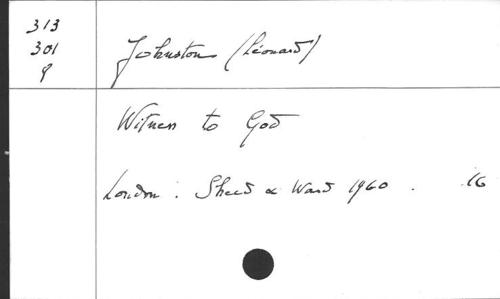 313
301
9
Johnston (Léonard)
Witness to God
London : Sheed & Ward 1960 . 16